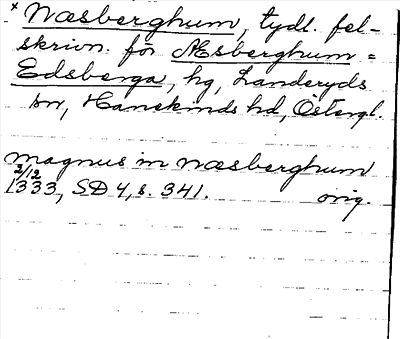 * Næsberghum, tydl. fel-
skrivn. för Æsberghum =
Edsberga, hg, Landeryds
sn, Hanekinds hd, Östergl.
magnus in næsberghum
2/12
1333, SD 4, s. 341. orig.